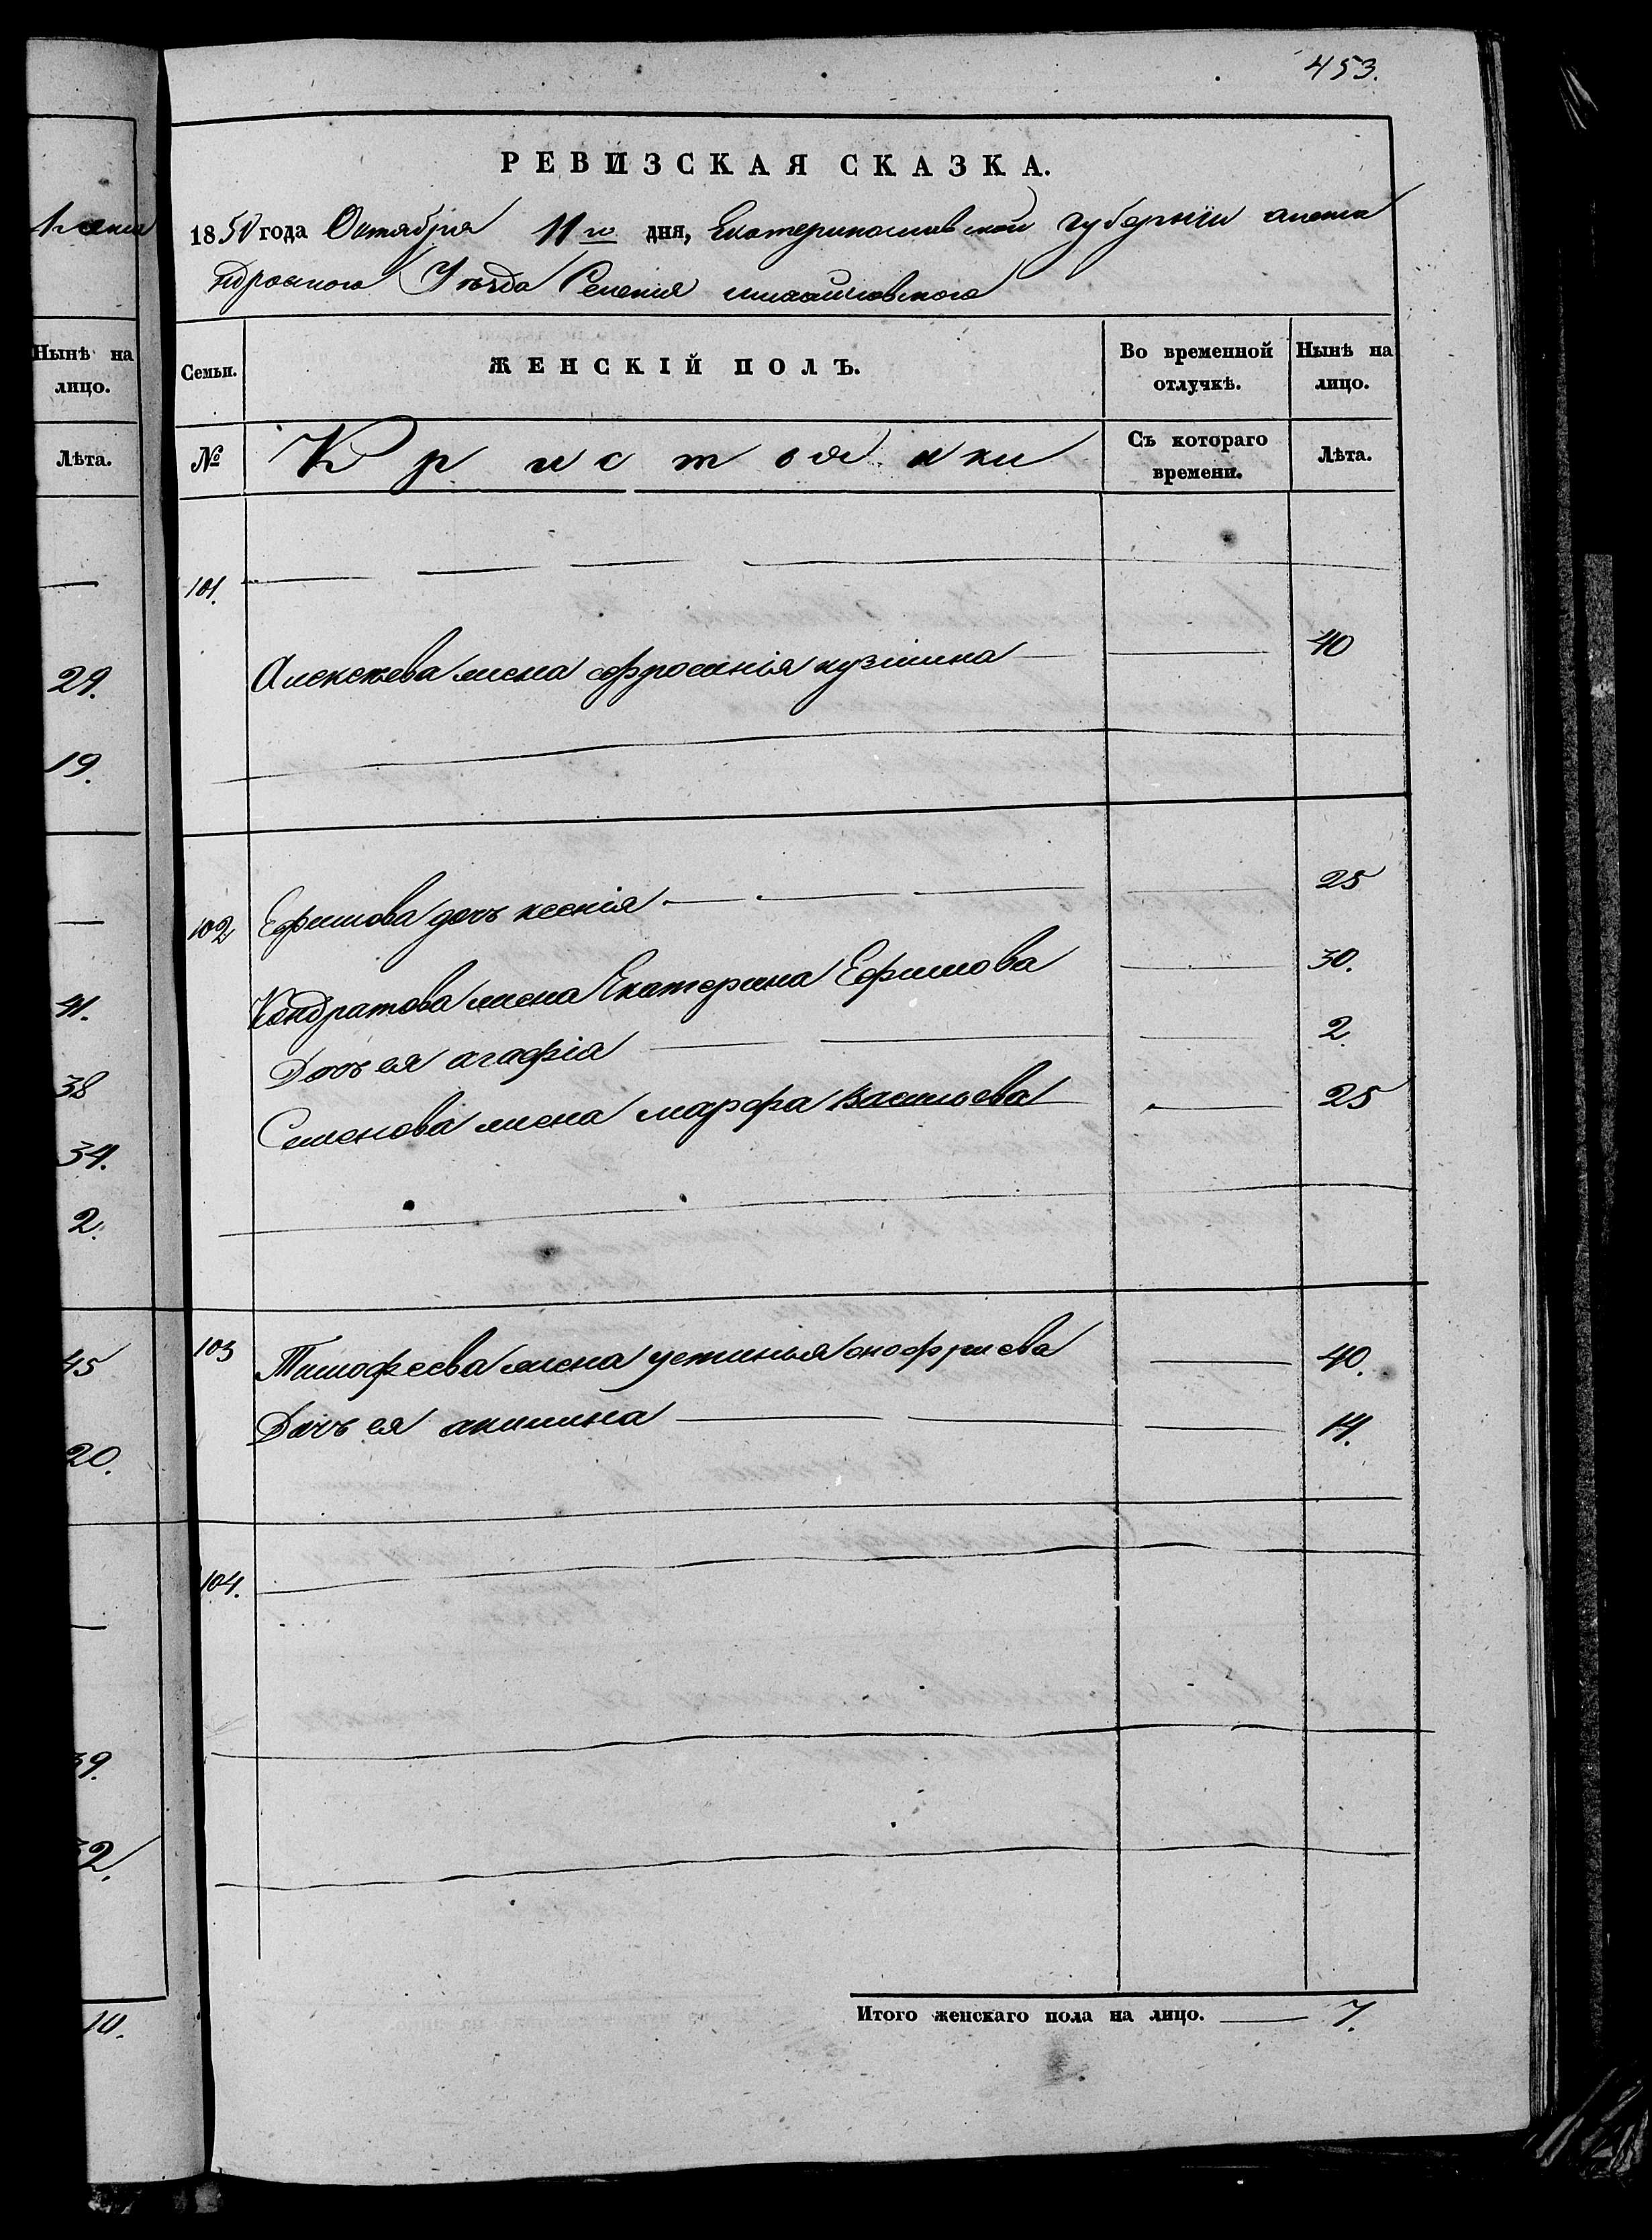 1
453.
РЕВИЗСКАЯ СКАЗКА.
1850 года Октября 11го дня, Екатеринославской губернии алекса
ндровского Уезда Селения
Нынѣ на лицо.
Лѣта.
29.
19.
41.
38
34.
2.
45
20.
39.
32.
10.
Семьи. ЖЕНСКІЙ ПОЛЪ. Во временной отлучкѣ. Нынѣ на лицо.
№ Кристоянки Съ котораго времени. Лѣта.
101.
Алексеева жена ефросинія кузмина 40
102 Ефимова дочь ксенія 25
Кондратова жена Екатерина Ефимова 30.
Дочь ея агафія 2
Семенова жена марфа васильева 25
103 Тимофеева жена устинья онофриева 40.
Дочь ея акилина 14.
104.
Итого женскаго пола на лицо. 7.